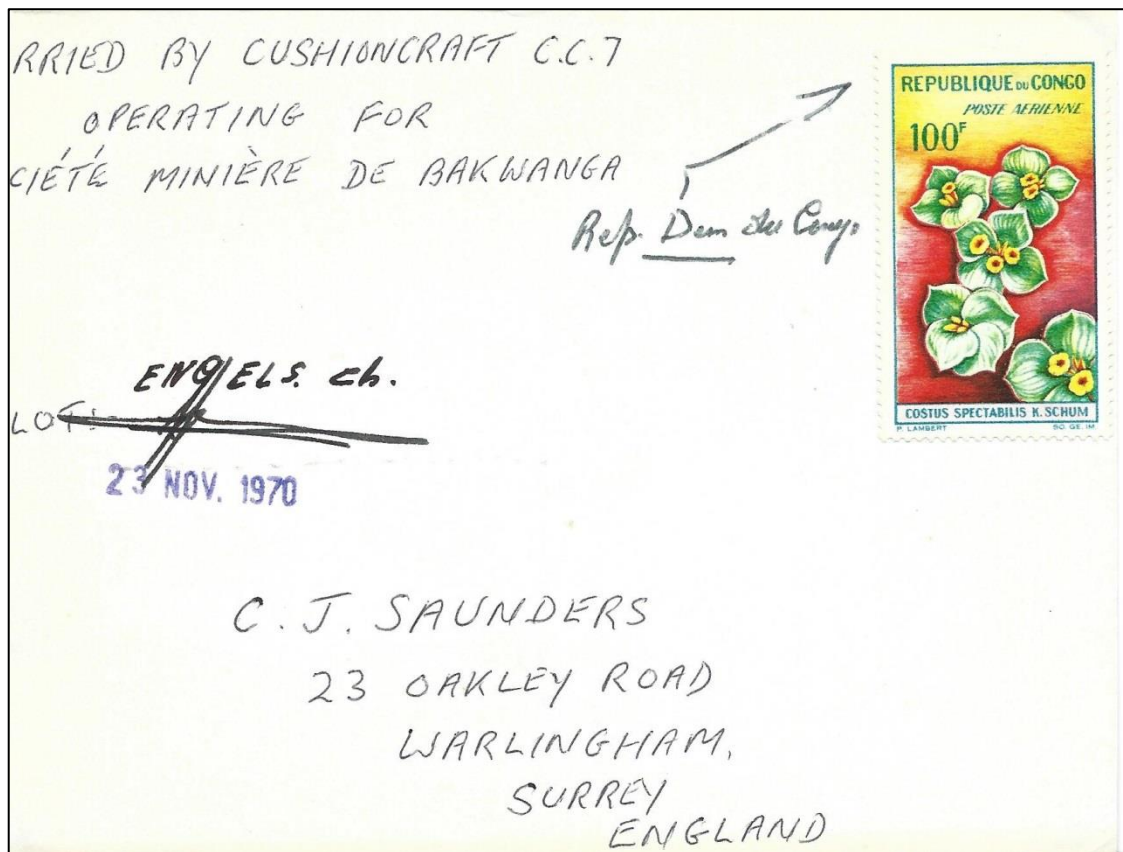 RRIED BY CUSHIONCRAFT C.C.7
OPERATING FOR
CIÉTÉ MINIÈRE DE BAKWANGA
Rep. Dem du Congo
REPUBLIQUE DU CONGO
POSTE AERIENNE
100F
COSTUS SPECTABILIS K. SCHUM
P. LAMBERT
SO. GE. IM.
ENGELS. Ch.
LOT:
23 NOV. 1970
C. J. SAUNDERS
23 OAKLEY ROAD
WARLINGHAM,
SURREY
ENGLAND